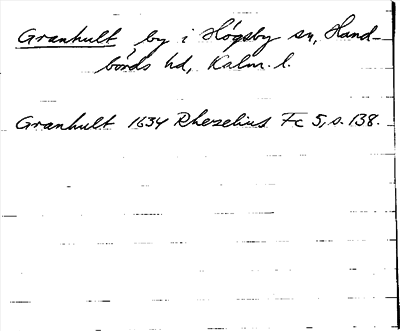 Granhult, by i Högsby sn, Hand-
börds hd, Kalm. l.
Granhult 1634 Rhezelius Fc 5, s. 138.